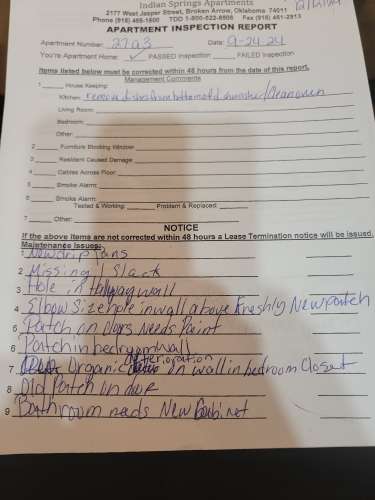 Indian Springs Apartments
2177 West Jasper Street, Broken Arrow, Oklahoma 74011
Phone (918) 455-1600 TDD 1-800-522-8506 Fax (918) 451-2913
APARTMENT INSPECTION REPORT
Apartment Number: 2703 Date: 9-24-24
You're Apartment Home: ✓ PASSED Inspection FAILED Inspection
Items listed below must be corrected within 48 hours from the date of this report.
Management Comments
1 House Keeping:
Kitchen: remove dishes from bottom of dishwasher/Clean oven
Living Room:
Bedroom:
Other:
2 Furniture Blocking Window
3 Resident Caused Damage
4 Cables Across Floor
5 Smoke Alarm:
6 Smoke Alarm:
Tested & Working: Problem & Replaced:
7 Other:
NOTICE
If the above items are not corrected within 48 hours a Lease Termination notice will be issued.
Maintenance Issues:
1 New drip Pans
2 Missing 1 Slack
3 Hole in Hallway wall
4 Elbow Size hole in wall above Freshly New Patch
5 Patch on Doors Needs Paint
6 Patch in bedroom wall
7 Organic Deterioration on wall in bedroom Closet
8 Old Patch on door
9 Bathroom needs New Cabinet